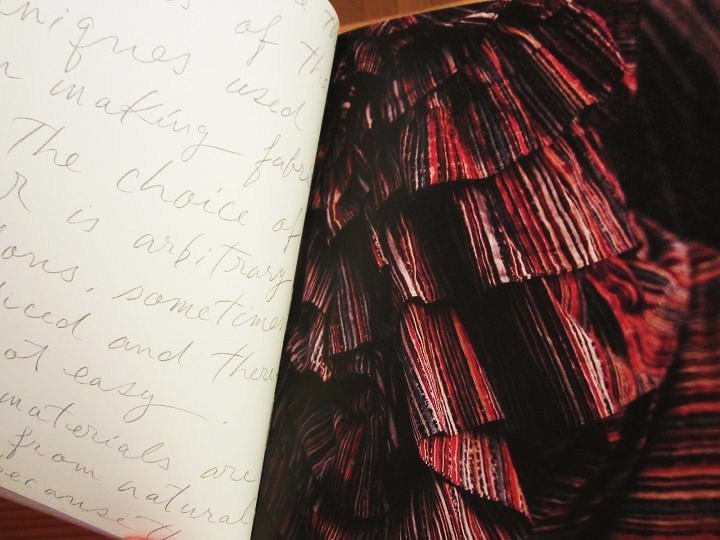 of the
niques used
making fabr
The choice of
R is arbitrary
ions, sometimes
iced and there
ot easy.
materials are
from natural
because th